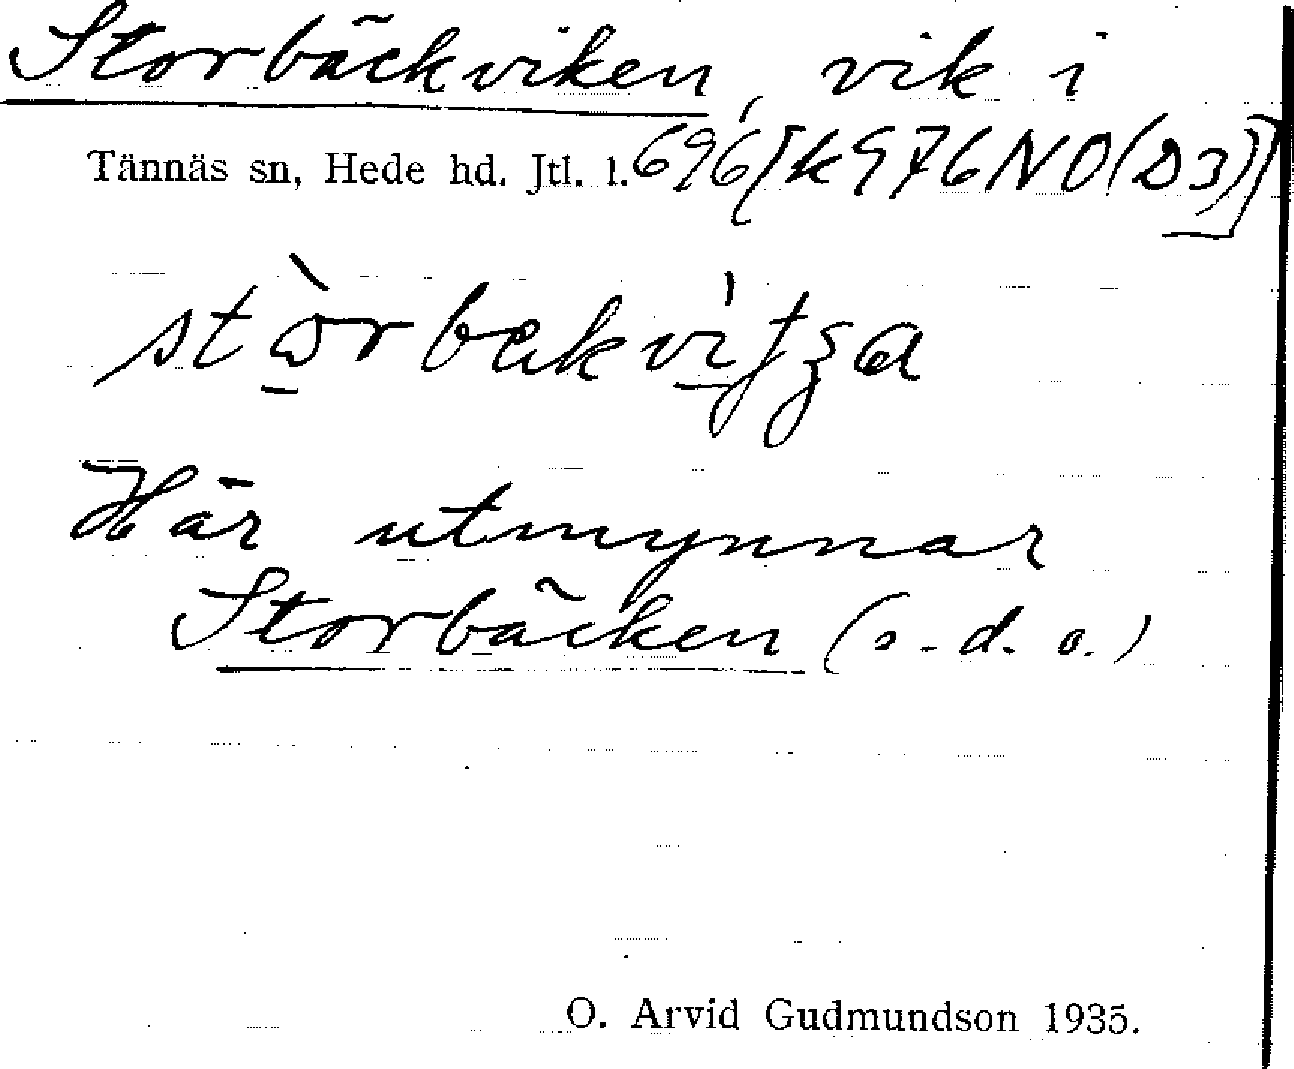 Storbäckviken, vik i
Tännäs sn, Hede hd. Jtl. l. 696 [K 976 NO (D3)]
Här utmynnar
Storbäcken (s.d.o.)
O. Arvid Gudmundson 1935.